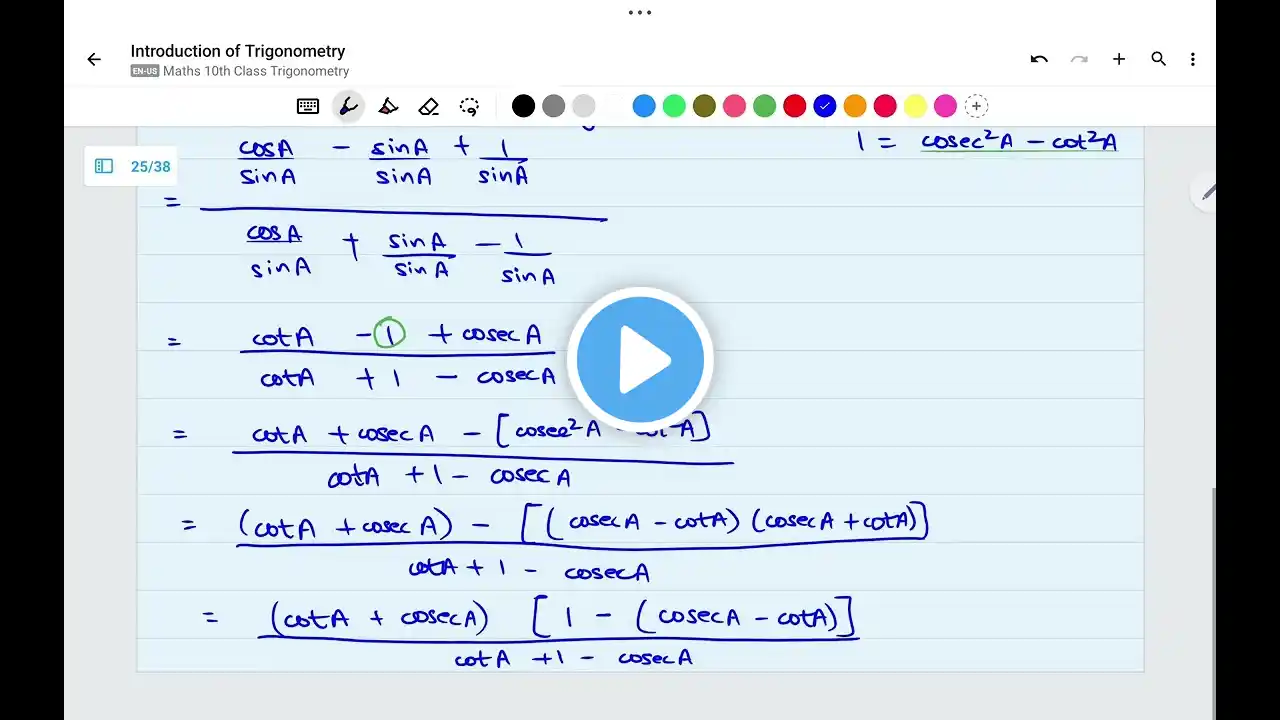 Introduction of Trigonometry
EN-US Maths 10th Class Trigonometry
25/38
cosA/sinA - sinA/sinA + 1/sinA
1 = cosec²A - cot²A
=
cosA/sinA + sinA/sinA - 1/sinA
= cotA - 1 + cosecA
cotA + 1 - cosecA
= cotA + cosecA - [cosec²A - cot²A]
cotA + 1 - cosecA
= (cotA + cosecA) - [(cosecA - cotA) (cosecA + cotA)]
cotA + 1 - cosecA
= (cotA + cosecA) [1 - (cosecA - cotA)]
cotA + 1 - cosecA